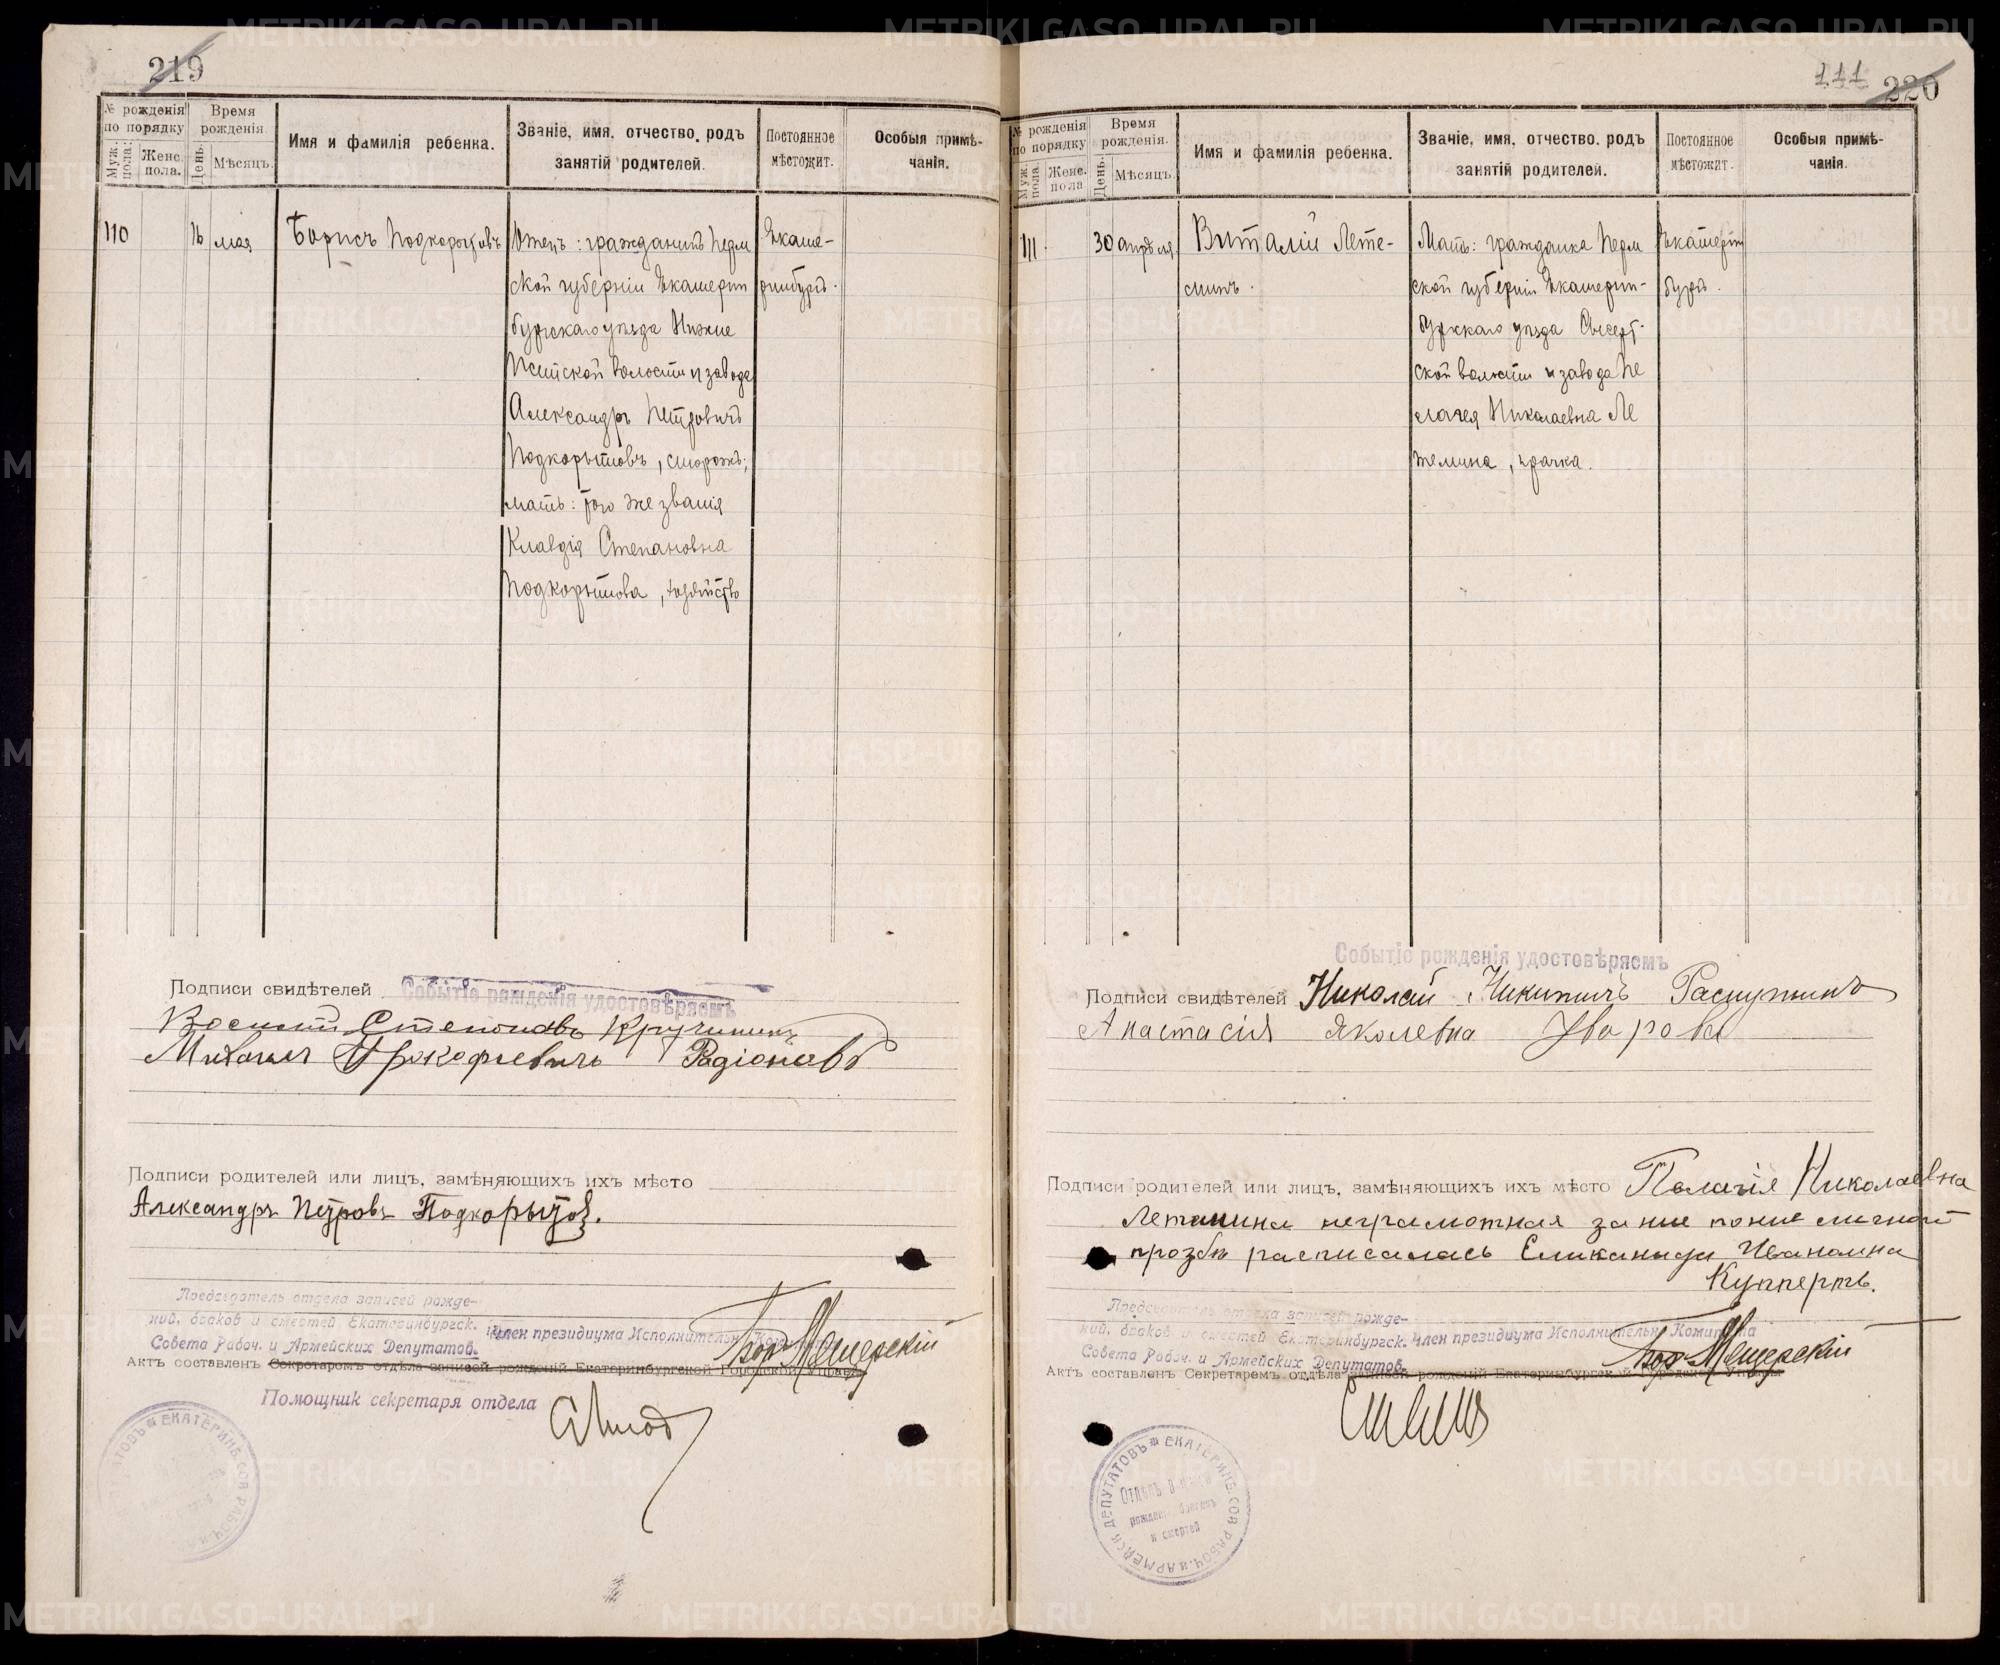 219
№ рожденія по порядку
Муж. пола.
Женс. пола.
Время рожденія.
День.
Мѣсяцъ.
Имя и фамилія ребенка.
Званіе, имя, отчество, родъ
занятій родителей.
Постоянное
мѣстожит.
Особыя примѣ-
чанія.
110
16
мая
Борисъ Подкорытовъ
Отецъ: гражданинъ Перм
ской губерніи Екатерин
бургскаго уѣзда Нижне
Исетской волости и завода
Александръ Петровичъ
Подкорытовъ, сторожъ;
мать: того же званія
Клавдія Степановна
Подкорытова, хозяйство
Екате-
ринбургъ.
Подписи свидѣтелей
Событіе рожденія удостовѣряемъ
Степановъ Кручининъ
Михаилъ Прокофьевичъ Радіоновъ
Подписи родителей или лицъ, замѣняющихъ ихъ мѣсто
Александръ Петровъ Подкорытов.
Председатель отдела записей рожде-
ний, браков и смертей Екатеринбургск.
Совета Рабоч. и Армейских Депутатов.
Член президиума Исполнительн.
Мещерскій
Актъ составленъ Секретаремъ отдѣла записей рожденій Екатеринбургской Городской Управы
Помощник секретаря отдела
111
220
№ рожденія по порядку
Муж. пола
Женс. пола
Время рожденія.
День.
Мѣсяцъ.
Имя и фамилія ребенка.
Званіе, имя, отчество, родъ
занятій родителей.
Постоянное
мѣстожит.
Особыя примѣ-
чанія.
111
30
апрѣля
Виталій Лете-
минъ.
Мать: гражданка Перм
ской губерніи Екатерин-
бургскаго уѣзда Сысерт-
ской волости и завода Пе
лагея Николаевна Ле
темина, прачка.
Екатерин
бургъ.
Событіе рожденія удостовѣряемъ
Подписи свидѣтелей Николай Никитичъ Распутинъ
Анастасія Яколевна Уварова
Подписи родителей или лицъ, замѣняющихъ ихъ мѣсто Пелагія Николаевна
Летемина неграмотная за ние поние личной
прозбѣ расписалась Ивановна
Куппертъ.
Председатель отдела записей рожде-
ний, браков и смертей Екатеринбургск.
Совета Рабоч. и Армейских Депутатов.
Член президиума Исполнительн. Комитета
Мещерскій
Актъ составленъ Секретаремъ отдѣла записей рожденій Екатеринбургской Городской Управы
ЕКАТЕРИНБ. СОВ. РАБОЧ. И АРМЕЙСК. ДЕПУТАТОВЪ
Отдѣлъ записи
рожденій браковъ
и смертей
METRIKI.GASO-URAL.RU